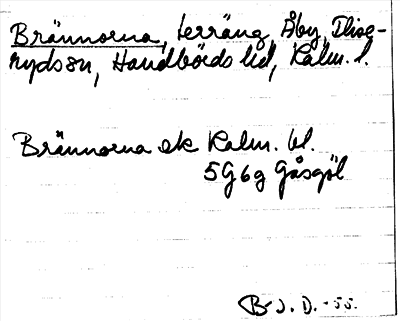 Brännorna, terräng, Åby, Ilise-
rydsön, Handbörds hd, Kalm. l.
Brännorna ek Kalm. bl.
5G6g Gåsgöl
B-J. D. -55.